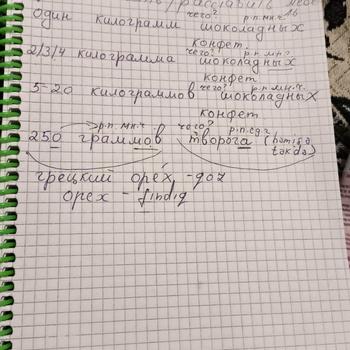 чего? р.п.мн.ч
один килограмм шоколадных
конфет.
чего? р.п.мн.ч
2/3/4 килограмма шоколадных
конфет
чего? р.п.мн.ч.
5-20 килограммов шоколадных
конфет
р.п.мн.ч. чего? р.п.ед.ч
250 граммов творога (həmişə
təkdə)
грецкий орех, -qoz
орех - findiq